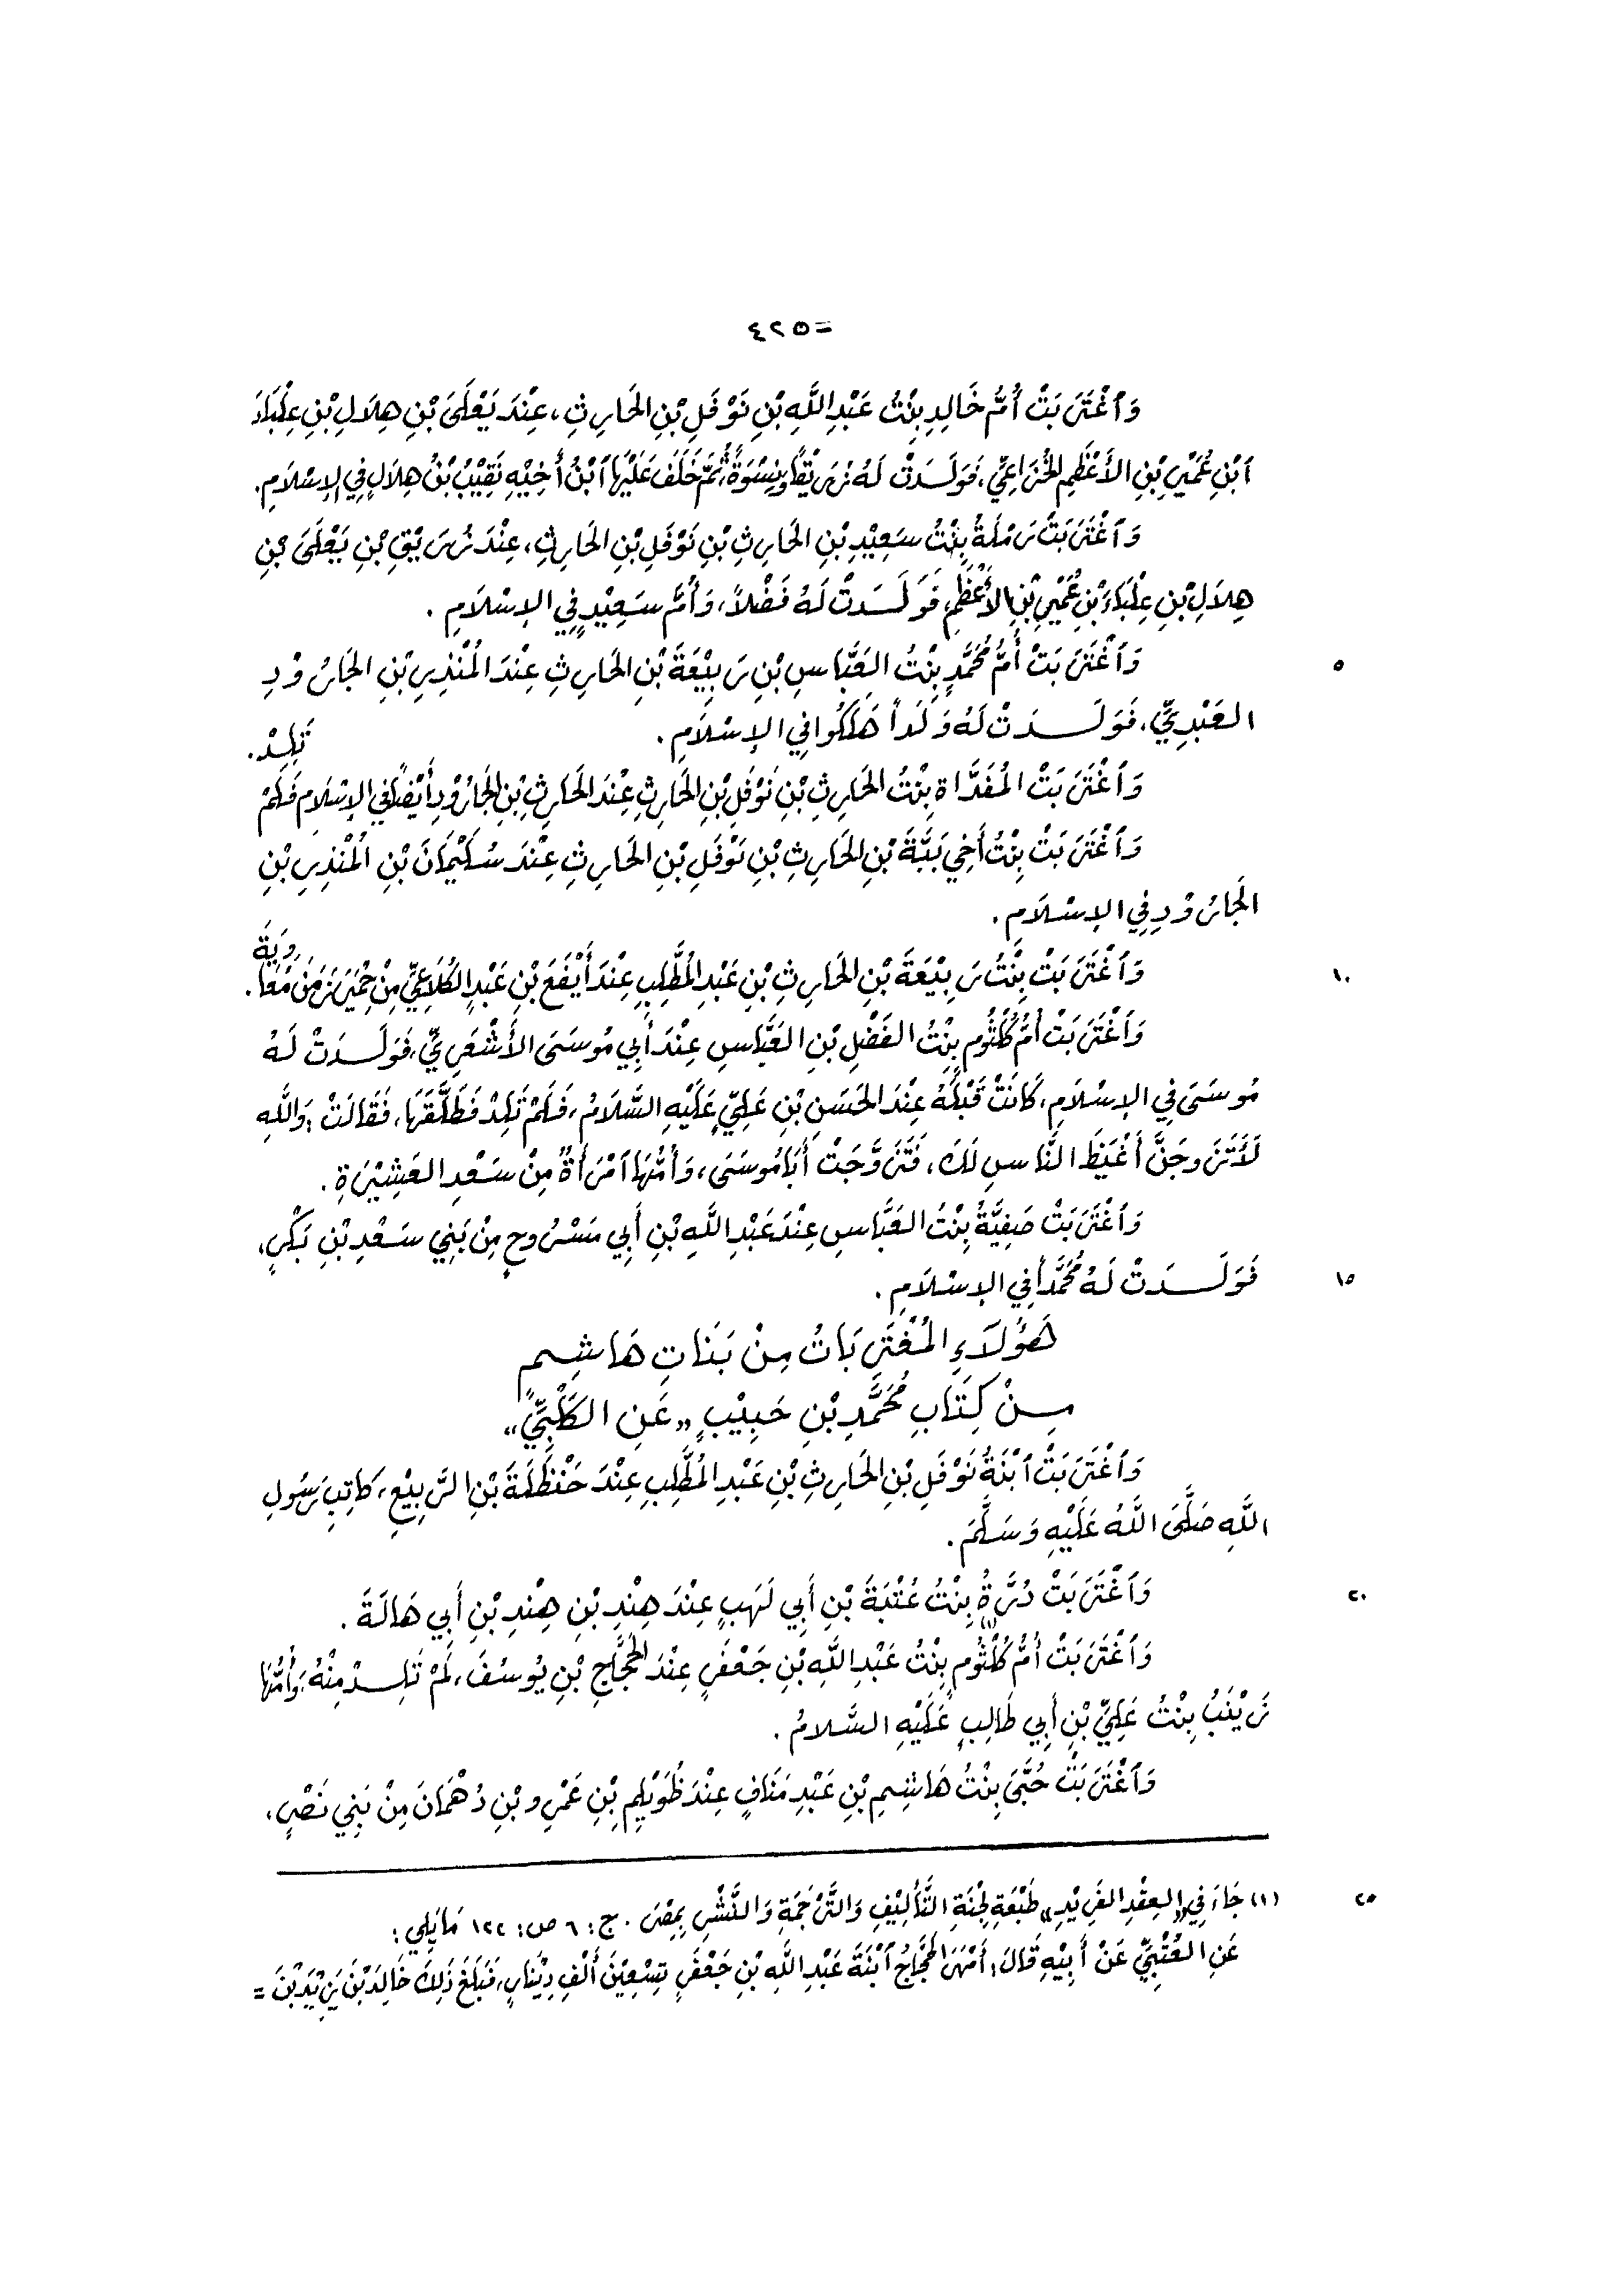 =٤٢٥
وَٱغْتَرَبَتْ أُمُّ خَالِدِ بِنْتُ عَبْدِ اللَّهِ بْنِ نَوْفَلِ بْنِ الحَارِثِ، عِنْدَ يَعْلَى بْنِ هِلَالِ بْنِ عِلْبَاءَ
ٱبْنِ عُمَيْرِ بْنِ الأَعْظَمِ الخُزَاعِيِّ، فَوَلَدَتْ لَهُ زُرَيْقًا وَنِسْوَةً، ثُمَّ خَلَفَ عَلَيْهَا ٱبْنُ أَخِيْهِ نَقِيْبُ بْنُ هِلَالٍ فِي الإِسْلَامِ.
وَٱغْتَرَبَتْ رَمْلَةُ بِنْتُ سَعِيْدِ بْنِ الحَارِثِ بْنِ نَوْفَلِ بْنِ الحَارِثِ، عِنْدَ زُرَيْقِ بْنِ يَعْلَى بْنِ
هِلَالِ بْنِ عِلْبَاءَ بْنِ عُمَيْرِ بْنِ الأَعْظَمِ، فَوَلَدَتْ لَهُ فَضْلاً، وَأُمَّ سَعِيْدٍ فِي الإِسْلَامِ.
٥ وَٱغْتَرَبَتْ أُمُّ مُحَمَّدٍ بِنْتُ العَبَّاسِ بْنِ رَبِيْعَةَ بْنِ الحَارِثِ عِنْدَ المُنْذِرِ بْنِ الجَارُوْدِ
العَبْدِيِّ، فَوَلَدَتْ لَهُ وَلَداً هَلَكُوا فِي الإِسْلَامِ.
وَٱغْتَرَبَتْ المُفَدَّاةِ بِنْتُ الحَارِثِ بْنِ نَوْفَلِ بْنِ الحَارِثِ عِنْدَ الحَارِثِ بْنِ الجَارُوْدِ أَيْضًا فِي الإِسْلَامِ فَلَمْ تَلِدْ.
وَٱغْتَرَبَتْ بِنْتُ أَخِي بَبَّةَ بْنِ الحَارِثِ بْنِ نَوْفَلِ بْنِ الحَارِثِ عِنْدَ سُلَيْمَانَ بْنِ المُنْذِرِ بْنِ
الجَارُوْدِ فِي الإِسْلَامِ.
١٠ وَٱغْتَرَبَتْ بِنْتُ رَبِيْعَةَ بْنِ الحَارِثِ بْنِ عَبْدِ المُطَّلِبِ عِنْدَ أَيْفَعَ بْنِ عَبْدٍ الكُلَاعِيِّ مِنْ حِمْيَرَ زَمَنَ مُعَاوِيَةَ.
وَٱغْتَرَبَتْ أُمُّ كُلْثُومٍ بِنْتُ الفَضْلِ بْنِ العَبَّاسِ عِنْدَ أَبِي مُوسَى الأَشْعَرِيِّ، فَوَلَدَتْ لَهُ
مُوسَى فِي الإِسْلَامِ، كَانَتْ قَبْلَهُ عِنْدَ الحَسَنِ بْنِ عَلِيٍّ عَلَيْهِ السَّلَامُ، فَلَمْ تَلِدْ فَطَلَّقَهَا، فَقَالَتْ: وَاللَّهِ
لَأَتَزَوجَنَّ أَغْيَظَ النَّاسِ لَكَ، فَتَزَوَّجَتْ أَبَا مُوسَى، وَأُمُّهَا ٱمْرَأَةٌ مِنْ سَعْدِ العَشِيْرَةِ.
وَٱغْتَرَبَتْ صَفِيَّةُ بِنْتُ العَبَّاسِ عِنْدَ عَبْدِ اللَّهِ بْنِ أَبِي مَسْرُوحٍ مِنْ بَنِي سَعْدِ بْنِ بَكْرٍ،
١٥ فَوَلَدَتْ لَهُ مُحَمَّداً فِي الإِسْلَامِ.
هَؤُلَاءِ المُغْتَرِبَاتُ مِنْ بَنَاتِ هَاشِمٍ
مِنْ كِتَابِ مُحَمَّدِ بْنِ حَبِيْبٍ «عَنِ الكَلْبِيِّ»
وَٱغْتَرَبَتْ ٱبْنَةُ نَوْفَلِ بْنِ الحَارِثِ بْنِ عَبْدِ المُطَّلِبِ عِنْدَ حَنْظَلَةَ بْنِ الرَّبِيْعِ، كَاتِبِ رَسُولِ
اللَّهِ صَلَّى اللَّهُ عَلَيْهِ وَسَلَّمَ.
٢٠ وَٱغْتَرَبَتْ دُرَّةُ بِنْتُ عُتْبَةَ بْنِ أَبِي لَهَبٍ عِنْدَ هِنْدِ بْنِ هِنْدِ بْنِ أَبِي هَالَةَ.
وَٱغْتَرَبَتْ أُمُّ كُلْثُومٍ (١) بِنْتُ عَبْدِ اللَّهِ بْنِ جَعْفَرٍ عِنْدَ الحَجَّاجِ بْنِ يُوسُفَ، لَمْ تَلِدْ مِنْهُ، وَأُمُّهَا
زَيْنَبُ بِنْتُ عَلِيِّ بْنِ أَبِي طَالِبٍ عَلَيْهِ السَّلَامُ.
وَٱغْتَرَبَتْ حُبَّى بِنْتُ هَاشِمِ بْنِ عَبْدِ مَنَافٍ عِنْدَ ظُوَيْلِمِ بْنِ عَمْرِو بْنِ دُهْمَانَ مِنْ بَنِي نَصْرٍ،
٢٥ (١) جَاءَ فِي «العِقْدِ الفَرِيْدِ» طَبْعَةِ لِجْنَةِ التَّأْلِيْفِ وَالتَّرْجَمَةِ وَالنَّشْرِ بِمِصْرَ. ج: ٦ ص: ١٢٢ مَايَلِي:
عَنِ العُتْبِيِّ عَنْ أَبِيْهِ قَالَ: أَمْهَرَ الحَجَّاجُ ٱبْنَةَ عَبْدِ اللَّهِ بْنِ جَعْفَرٍ تِسْعِيْنَ أَلْفِ دِيْنَارٍ، فَبَلَغَ ذَلِكَ خَالِدَ بْنَ يَزِيْدَ بْنَ =